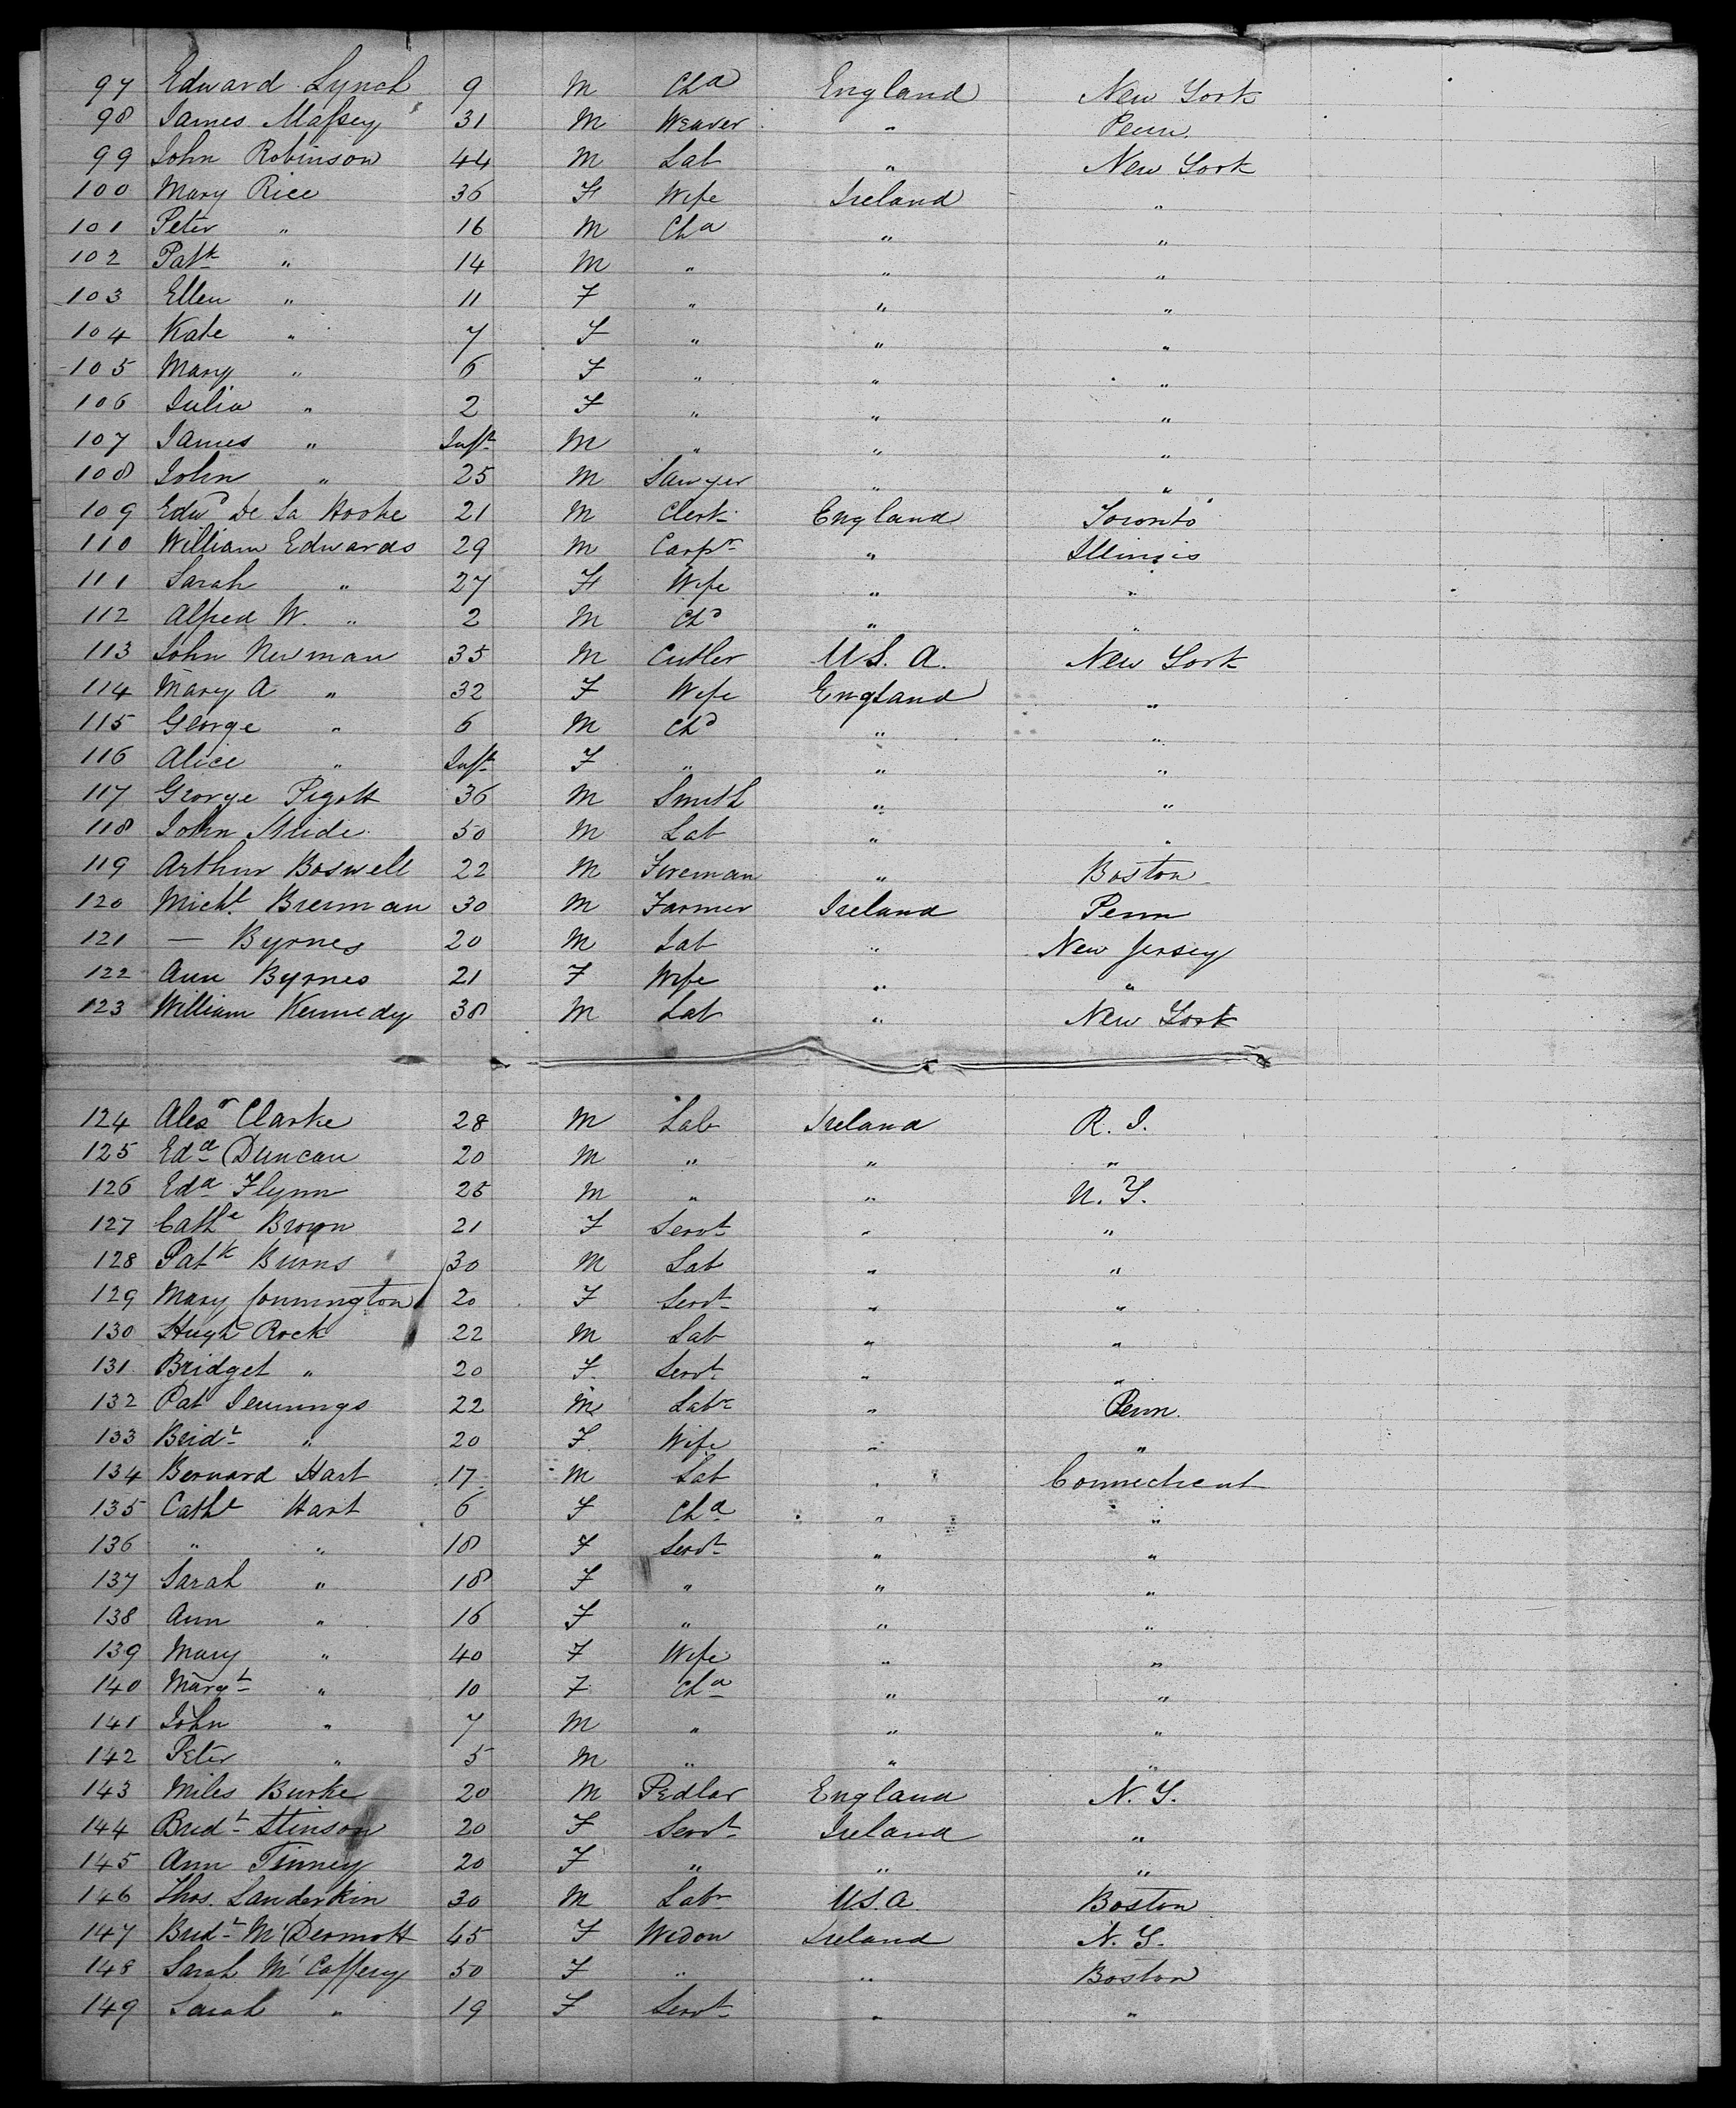 97 Edward Lynch 9 M Chd England New York
98 James Massey 31 M Weaver " Penn.
99 John Robinson 44 M Lab " New York
100 Mary Rice 36 F Wife Ireland "
101 Peter " 16 M Chd " "
102 Patk " 14 M " " "
103 Ellen " 11 F " " "
104 Kate " 7 F " " "
105 Mary " 6 F " " "
106 Julia " 2 F " " "
107 James " Inft M " " "
108 John " 25 M Sawyer " "
109 Edwd De La Hooke 21 M Clerk England Toronto
110 William Edwards 29 M Carpr " Illinois
111 Sarah " 27 F Wife " "
112 Alfred W. " 2 M Chd " "
113 John Newman 35 M Cutler U.S. A. New York
114 Mary A " 32 F Wife England "
115 George " 6 M Chd " "
116 Alice " Inft F " " "
117 George Pigott 36 M Smith " "
118 John 50 M Lab " "
119 Arthur Boswell 22 M Fireman " Boston
120 Michl. Brennan 30 M Farmer Ireland Penn
121 — Byrnes 20 M Lab " New Jersey
122 Ann Byrnes 21 F Wife " "
123 William Kennedy 38 M Lab " New York
124 Alexr Clarke 28 M Lab Ireland R. I.
125 Edd Duncan 20 M " " "
126 Edd Flynn 25 M " " N. Y.
127 Cathe Brown 21 F Servt " "
128 Patk Burns 30 M Lab " "
129 Mary Connington 20 F Servt " "
130 Hugh Rock 22 M Lab " "
131 Bridget " 20 F Servt " "
132 Pat Jennings 22 M Labr " Penn.
133 Bridt " 20 F Wife " "
134 Bernard Hart 17 M Lab " Connecticut
135 Cathe Hart 6 F Chd " "
136 " " 18 F Servt " "
137 Sarah " 18 F " " "
138 Ann " 16 F " " "
139 Mary " 40 F Wife " "
140 Margt " 10 F Chd " "
141 John " 7 M " " "
142 Peter " 5 M " " "
143 Miles Burke 20 M Pedlar England N. Y.
144 Bridt Stinson 20 F Servt Ireland "
145 Ann Finney 20 F " " "
146 Thos. Landerkin 30 M Labr U.S.A. Boston
147 Bridt McDermott 45 F Widow Ireland N. Y.
148 Sarah McCaffery 50 F " " Boston
149 Sarah " 19 F Servt " "